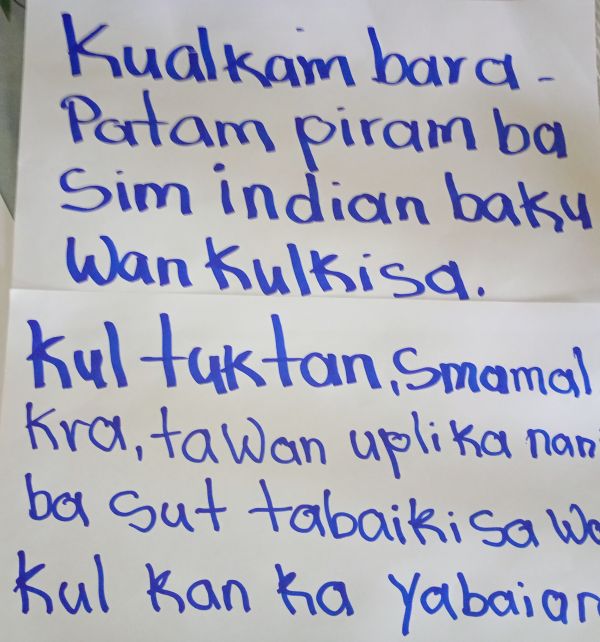 Kualkam bara -
Patam piram ba
Sim indian baku
Wan Kulkisa.
Kul tuktan, Smamal
kra, tawan uplika nan
ba sut tabaiki sa
Kul kan ka yabaian